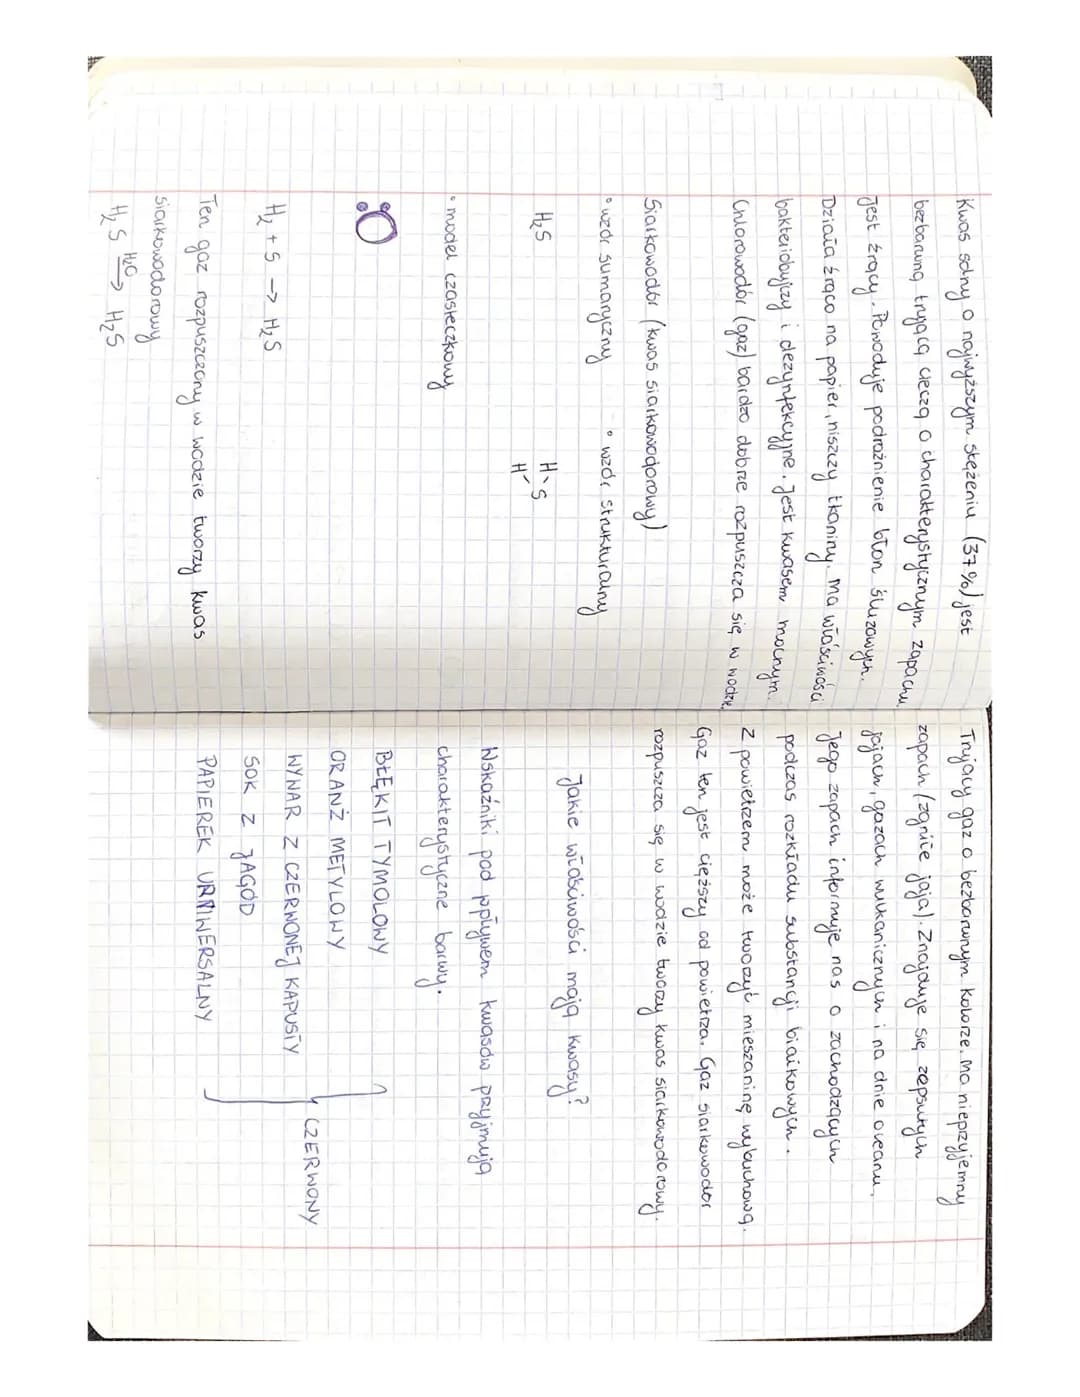 Kwas solny o najwyższym stężeniu (37%) jest
bezbarwną trującą cieczą o charakterystycznym zapachu.
Jest żrący. Powoduje podrażnienie błon śluzowych.
Działa żrąco na papier, niszczy tkaniny. Ma właściwości
bakteriobójczy i dezynfekcyjne. Jest kwasem mocnym.
Chlorowodór (gaz) bardzo dobrze rozpuszcza się w wodzie.
Siarkowodór (kwas siarkowodorowy)
• wzór sumaryczny • wzór strukturalny
H₂S
H
S
H
• model cząsteczkowy
H₂ + S → H₂S
Ten gaz rozpuszczony w wodzie tworzy kwas
siarkowodorowy
H₂S H₂O → H₂S
Trujący gaz o bezbarwnym kolorze. Ma nieprzyjemny
zapach (zgniłe jaja). Znajduje się zepsutych
jajach, gazach wulkanicznych i na dnie oceanu.
Jego zapach informuje nas o zachodzących
podczas rozkładu substancji białkowych.
Z powietrzem może tworzyć mieszaninę wybuchową.
Gaz ten jest cięższy od powietrza. Gaz siarkowodór
rozpuszcza się w wodzie tworzy kwas siarkowodorowy.
Jakie właściwości mają kwasy?
Wskaźniki pod wpływem kwasów przyjmują
charakterystyczne barwy.
BŁĘKIT TYMOLOWY
ORANŻ METYLOWY
WYWAR Z CZERWONEJ KAPUSTY
SOK Z JAGÓD
PAPIEREK UNIWERSALNY
CZERWONY